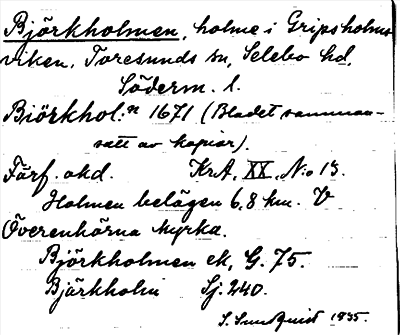 Björkholmen, holme i Gripsholms
viken, Toresunds sn, Selebo hd,
Söderm. l.
Biörkhol:n 1671 (Bladet samman-
satt av kopior).
Förf. okd. KrA, XX, N:o 13.
Holmen belägen 6,8 km. V
Överenhörna kyrka.
Björkholmen ek, G. 75.
Björkholm Sj. 240.
S. Sundquist 1935.